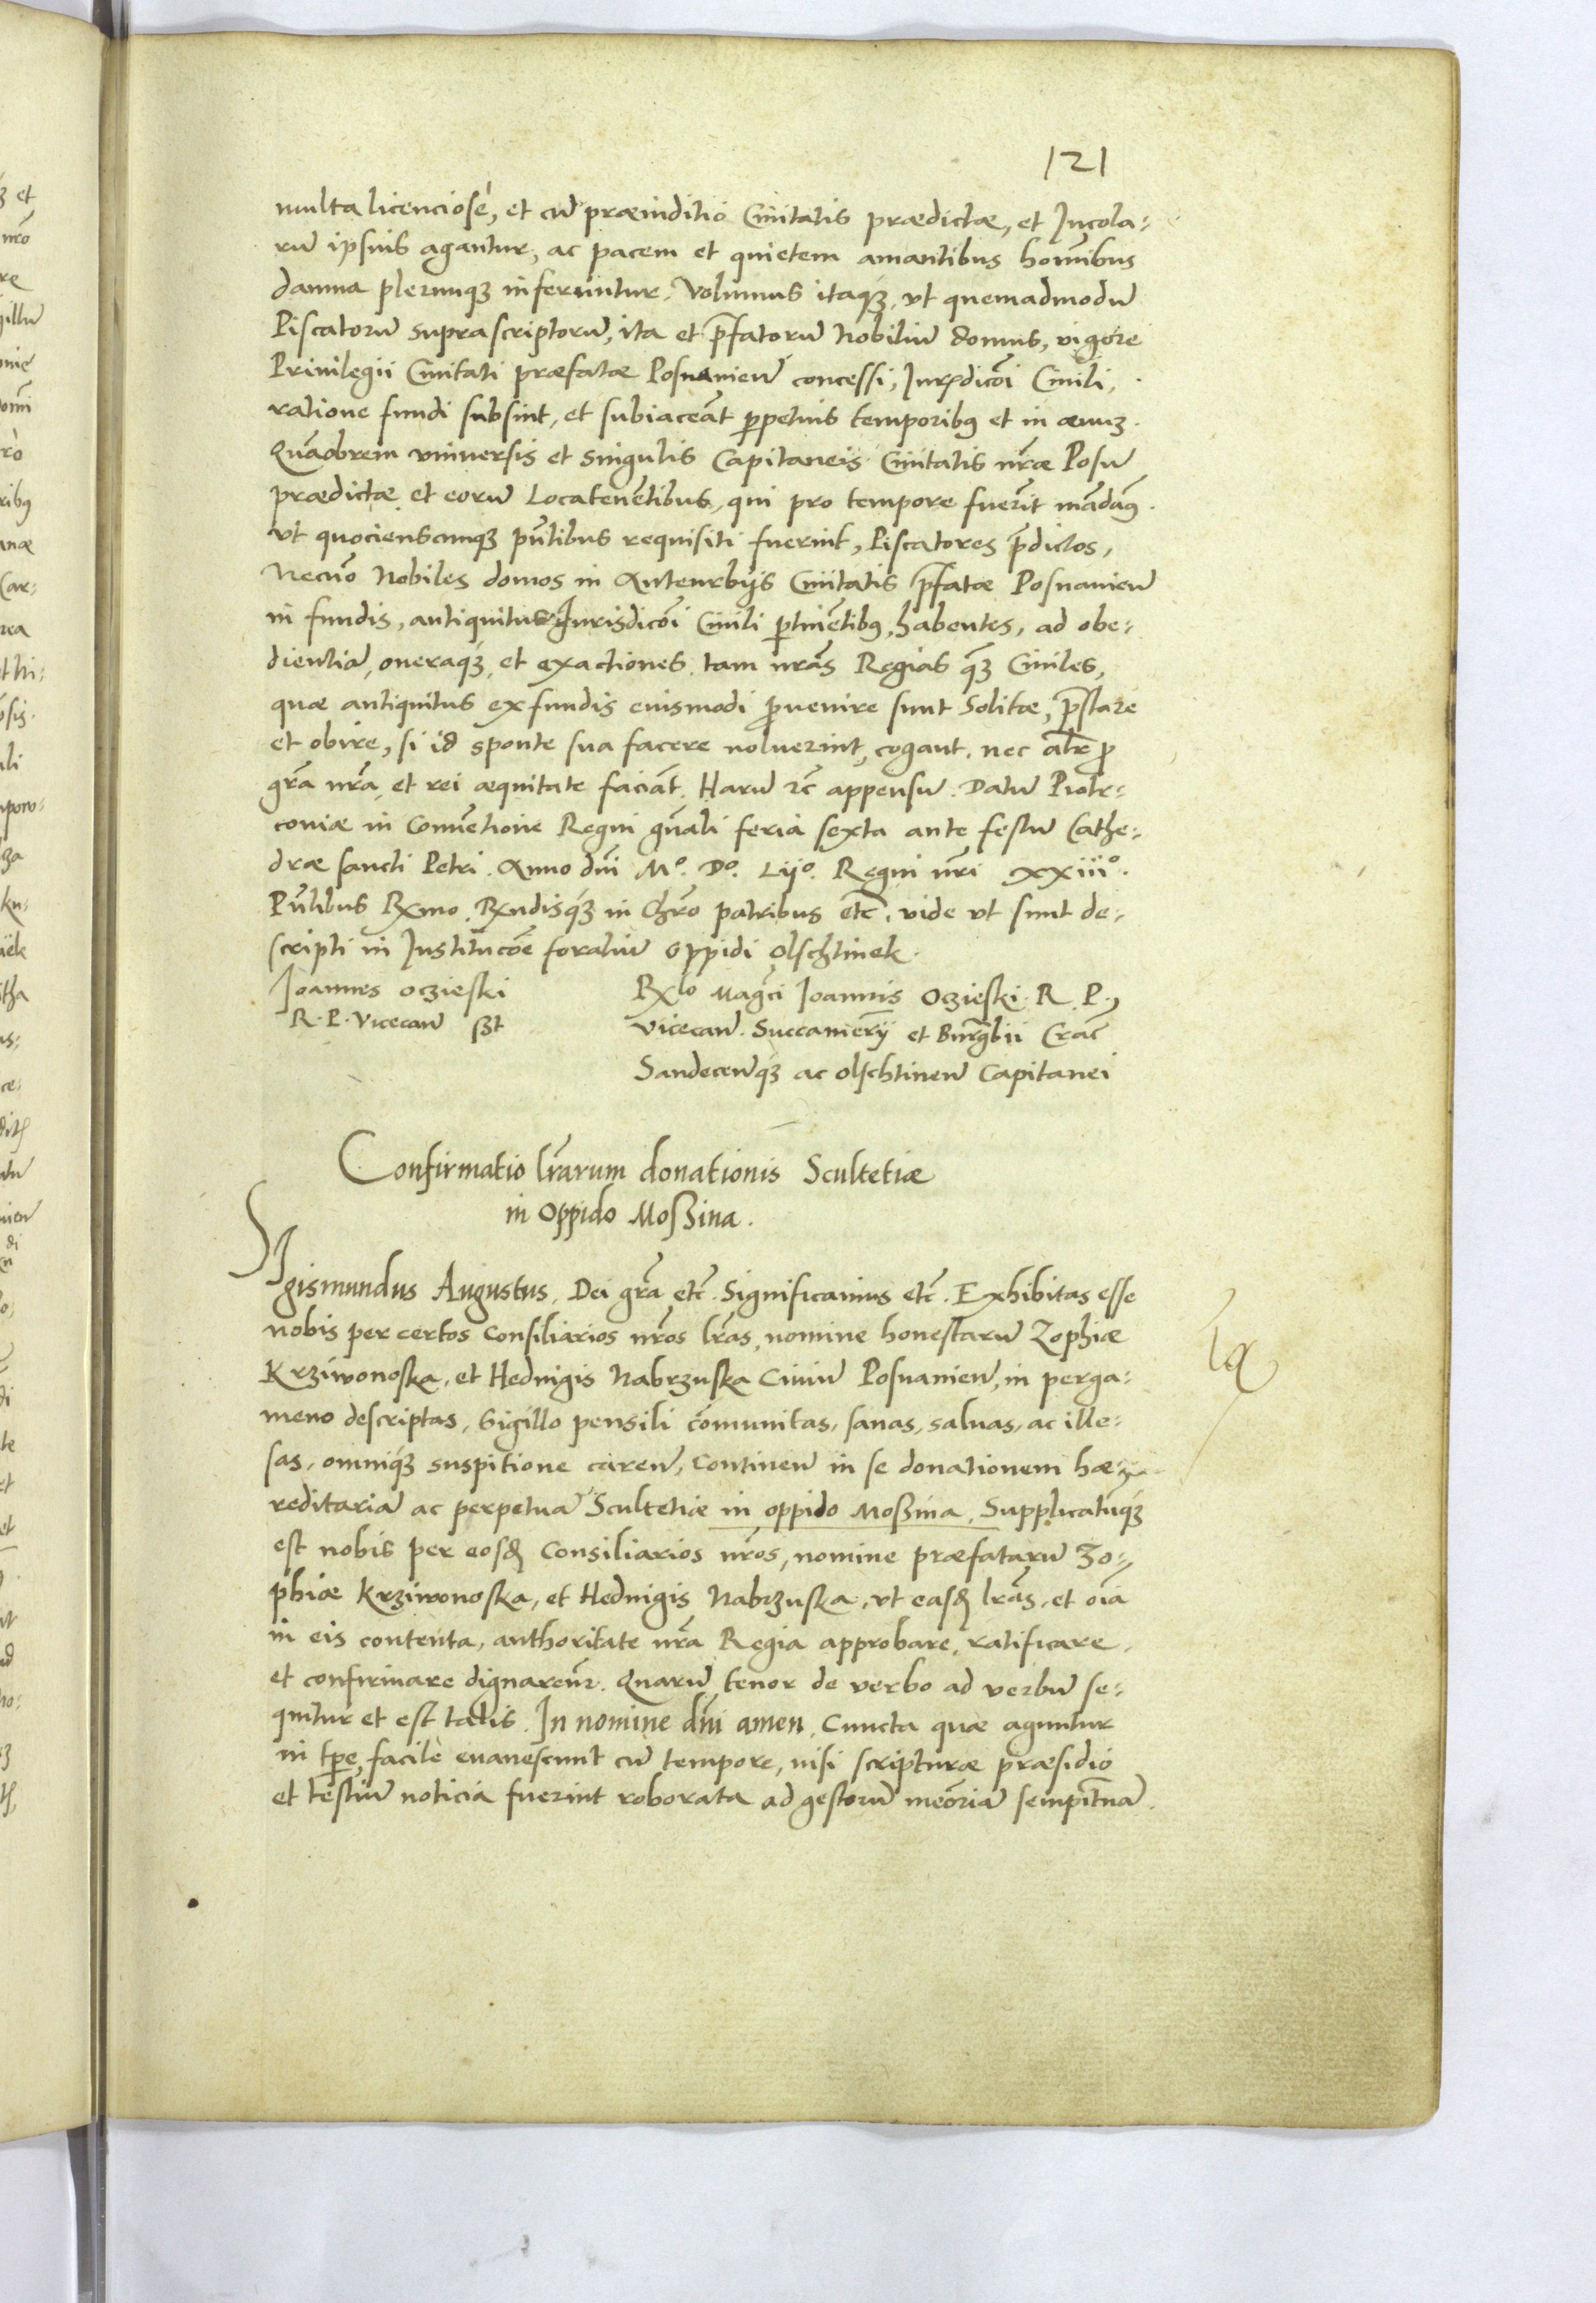 121
multa licenciosè, et cū præiuditio Ciuitatis prædictæ, et Incola-
rū ipsius agantur, ac pacem et quietem amantibus homībus
damna plerunqꝫ inferuntur. Volumus itaqꝫ, vt quemadmodū
Piscatorū suprascriptorū, ita et p̄fatorū Nobiliū domus, vigore
Priuilegii Ciuitati præfatæ Posnanieñ concessi, Iurꝫdicōi Ciuili,
ratione fundi subsint, et subiaceāt ꝑpetuis temporibꝰ et in æuuꝫ.
Quāobrem vniuersis et singulis Capitaneis Ciuitatis nr̄æ Posñ
prædictæ et eorū Locatenētibus, qui pro tempore fuerīt mādamꝰ
vt quociescunqꝫ pn̄tibus requisiti fuerint, Piscatores p̄dictos,
Necnō Nobiles domos in Anteurbijs Ciuitatis p̄fatæ Posnanieñ
in fundis, antiquitus Iurisdicōi Ciuili ꝑtinētibꝰ, habentes, ad obe-
dientiā, oneraqꝫ, et exactiones tam nrās Regias qꝫ Ciuiles,
quæ antiquitus ex fundis eiusmodi ꝓuenire sunt Solitæ, p̄stare
et obire, si id sponte sua facere noluerint, cogant. nec alr̄ ꝓ
gr̄a nr̄a, et rei æquitate faciāt. Harū ꝛc̄ appensū. Datū Piotr-
couiæ in Conuētione Regni gn̄ali feria sexta ante festū Cathe-
dræ sancti Petri. Anno dn̄i Mº. Dº. Lijº. Regni nr̄i xxiiiº.
Pn̄tibus Rx̄mo, Rx̄ndisqꝫ in Chrō patribus etc̄. vide vt sunt de-
scripti in Institucōe foraliū oppidi Olschtinek.
Joannes oczieski
R. P. Vicecañ sst
Rx̄lo Mag̅ci Joannis Oczieski R. P.
Vicecañ. Succamerij et Burg̅bii Crac̄
Sandeceñqꝫ ac olschtineñ Capitanei
Confirmatio lr̄arum donationis Scultetiæ
in Oppido Moßina.
Sigismundus Augustus. Dei gr̄a etc̄. Significamus etc̄. Exhibitas esse
nobis per certos Consiliarios nr̄os lr̄as, nomine honestarū Zophiæ
Krziwonoska, et Heduigis Nabrzuska Ciuiū Posnanieñ, in perga-
meno descriptas, Sigillo pensili cōmunitas, sanas, saluas, ac ille-
sas, omniqꝫ suspitione careñ, Contineñ in se donationem hæ-
reditariā ac perpetuā Scultetiæ in oppido Moßina, Supplicatūqꝫ
est nobis per eosđ Consiliarios nr̄os, nomine præfatarū Zo-
phiæ Krziwonoska, et Heduigis Nabrzuska, vt easđ lrās, et oīa
in eis contenta, authoritate nr̄a Regia approbare, ratificare,
et confirmare dignaremꝛ. Quarū tenor de verbo ad verbū se-
quitur et est talis. In nomine dn̄i amen. Cuncta quæ aguntur
in tp̄e, facilè euanescunt cū tempore, nisi scripturæ præsidio
et testiū noticia fuerint roborata ad gestorū meōriā sempit̄nā.